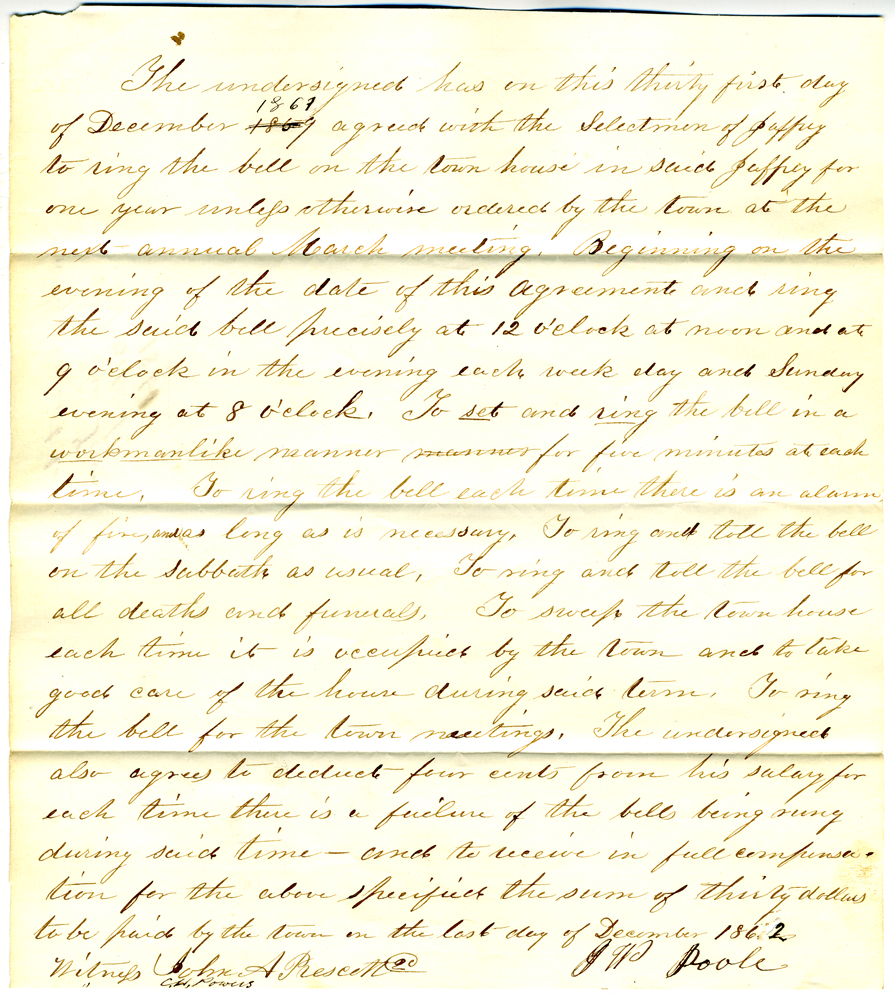 The undersigned has on this thirty first day
1861
of December 1869 agreed with the Selectmen of Jaffrey
to ring the bell on the town house in said Jaffrey for
one year unless otherwise ordered by the town at the
next annual March meeting. Beginning on the
evening of the date of this agreement and ring
the said bell precisely at 12 o'clock at noon and at
9 o'clock in the evening each week day and Sunday
evening at 8 o'clock. To set and ring the bell in a
workmanlike manner manner for five minutes at each
time. To ring the bell each time there is an alarm
of fire, and as long as is necessary. To ring and toll the bell
on the sabbath as usual. To ring and toll the bell for
all deaths and funerals. To sweep the town house
each time it is occupied by the town and to take
good care of the house during said term. To ring
the bell for the town meetings. The undersigned
also agrees to deduct four cents from his salary for
each time there is a failure of the bells being rung
during said time — and to receive in full compensa-
tion for the above specified the sum of thirty dollars
to be paid by the town on the last day of December 1862
Witness John A Prescott 2d J W Poole
C.H. Powers